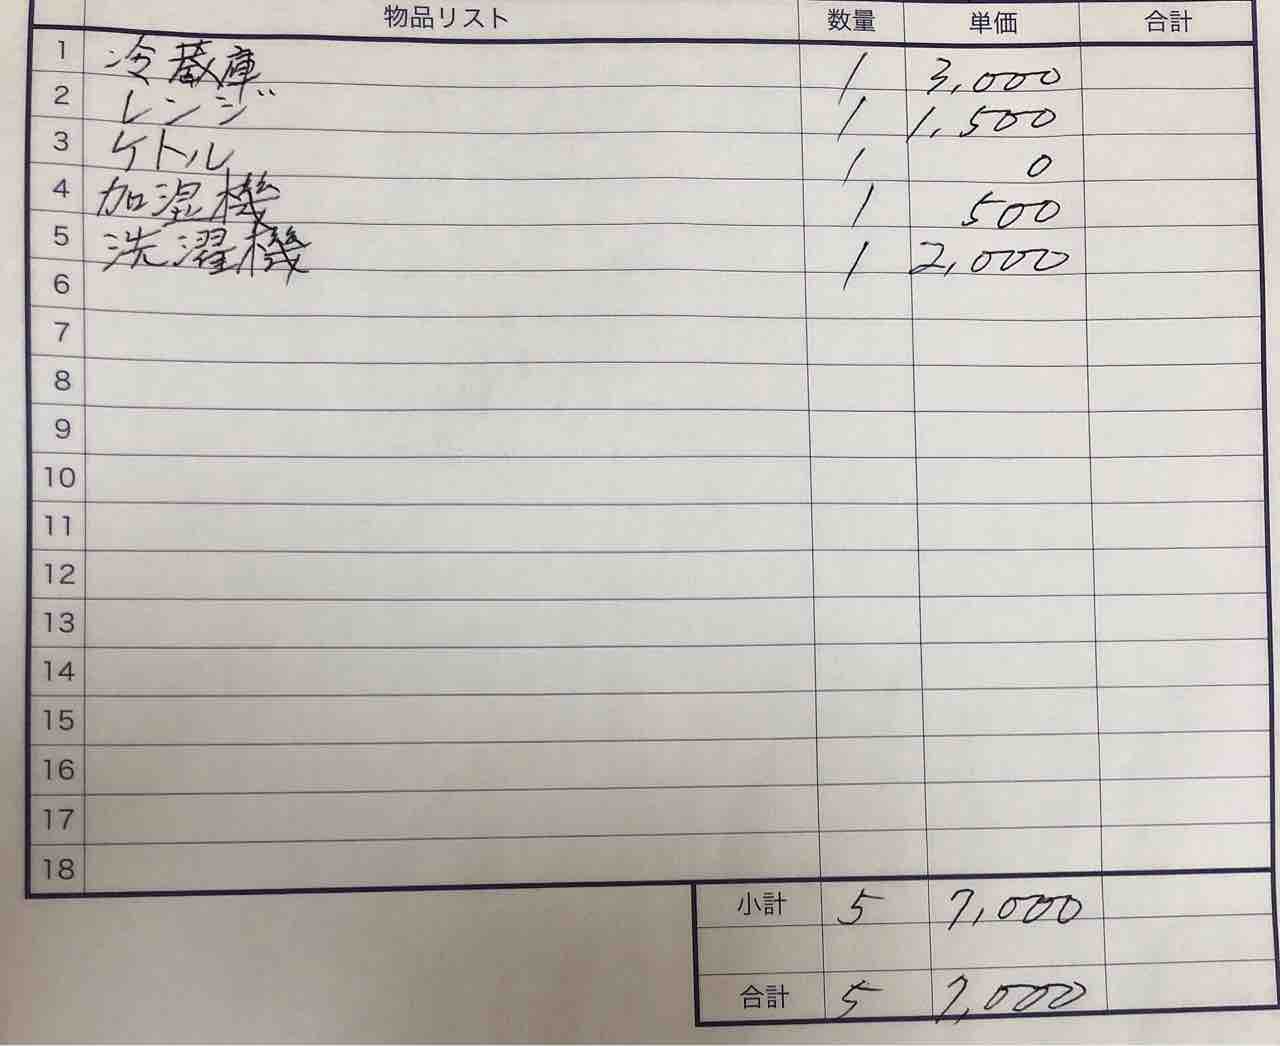 物品リスト 数量 単価 合計
1 冷蔵庫 1 3,000
2 レンジ 1 1,500
3 ケトル 1 0
4 加湿機 1 500
5 洗濯機 1 2,000
6
7
8
9
10
11
12
13
14
15
16
17
18
小計 5 7,000
合計 5 7,000